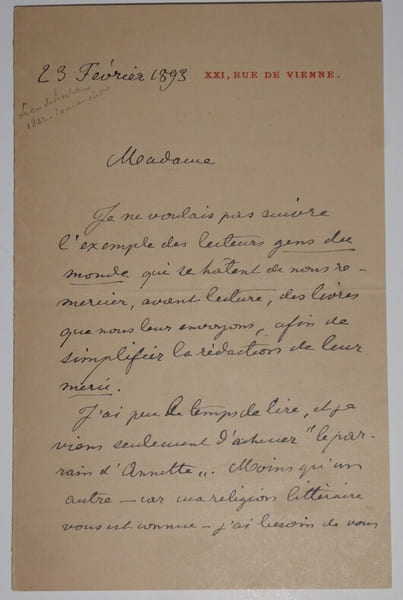 23 Février 1893 XXI, RUE DE VIENNE.
Madame
Je ne voulais pas suivre
l'exemple des lecteurs gens du
monde qui se hâtent de nous re-
mercier, avant lecture, des livres
que nous leur envoyons, afin de
simplifier la rédaction de leur
merci.
J'ai peu de temps de lire, et je
viens seulement d'achever "le par-
rain d'Annette". Moins qu'un
autre — car ma religion littéraire
vous est connue — j'ai besoin de vous